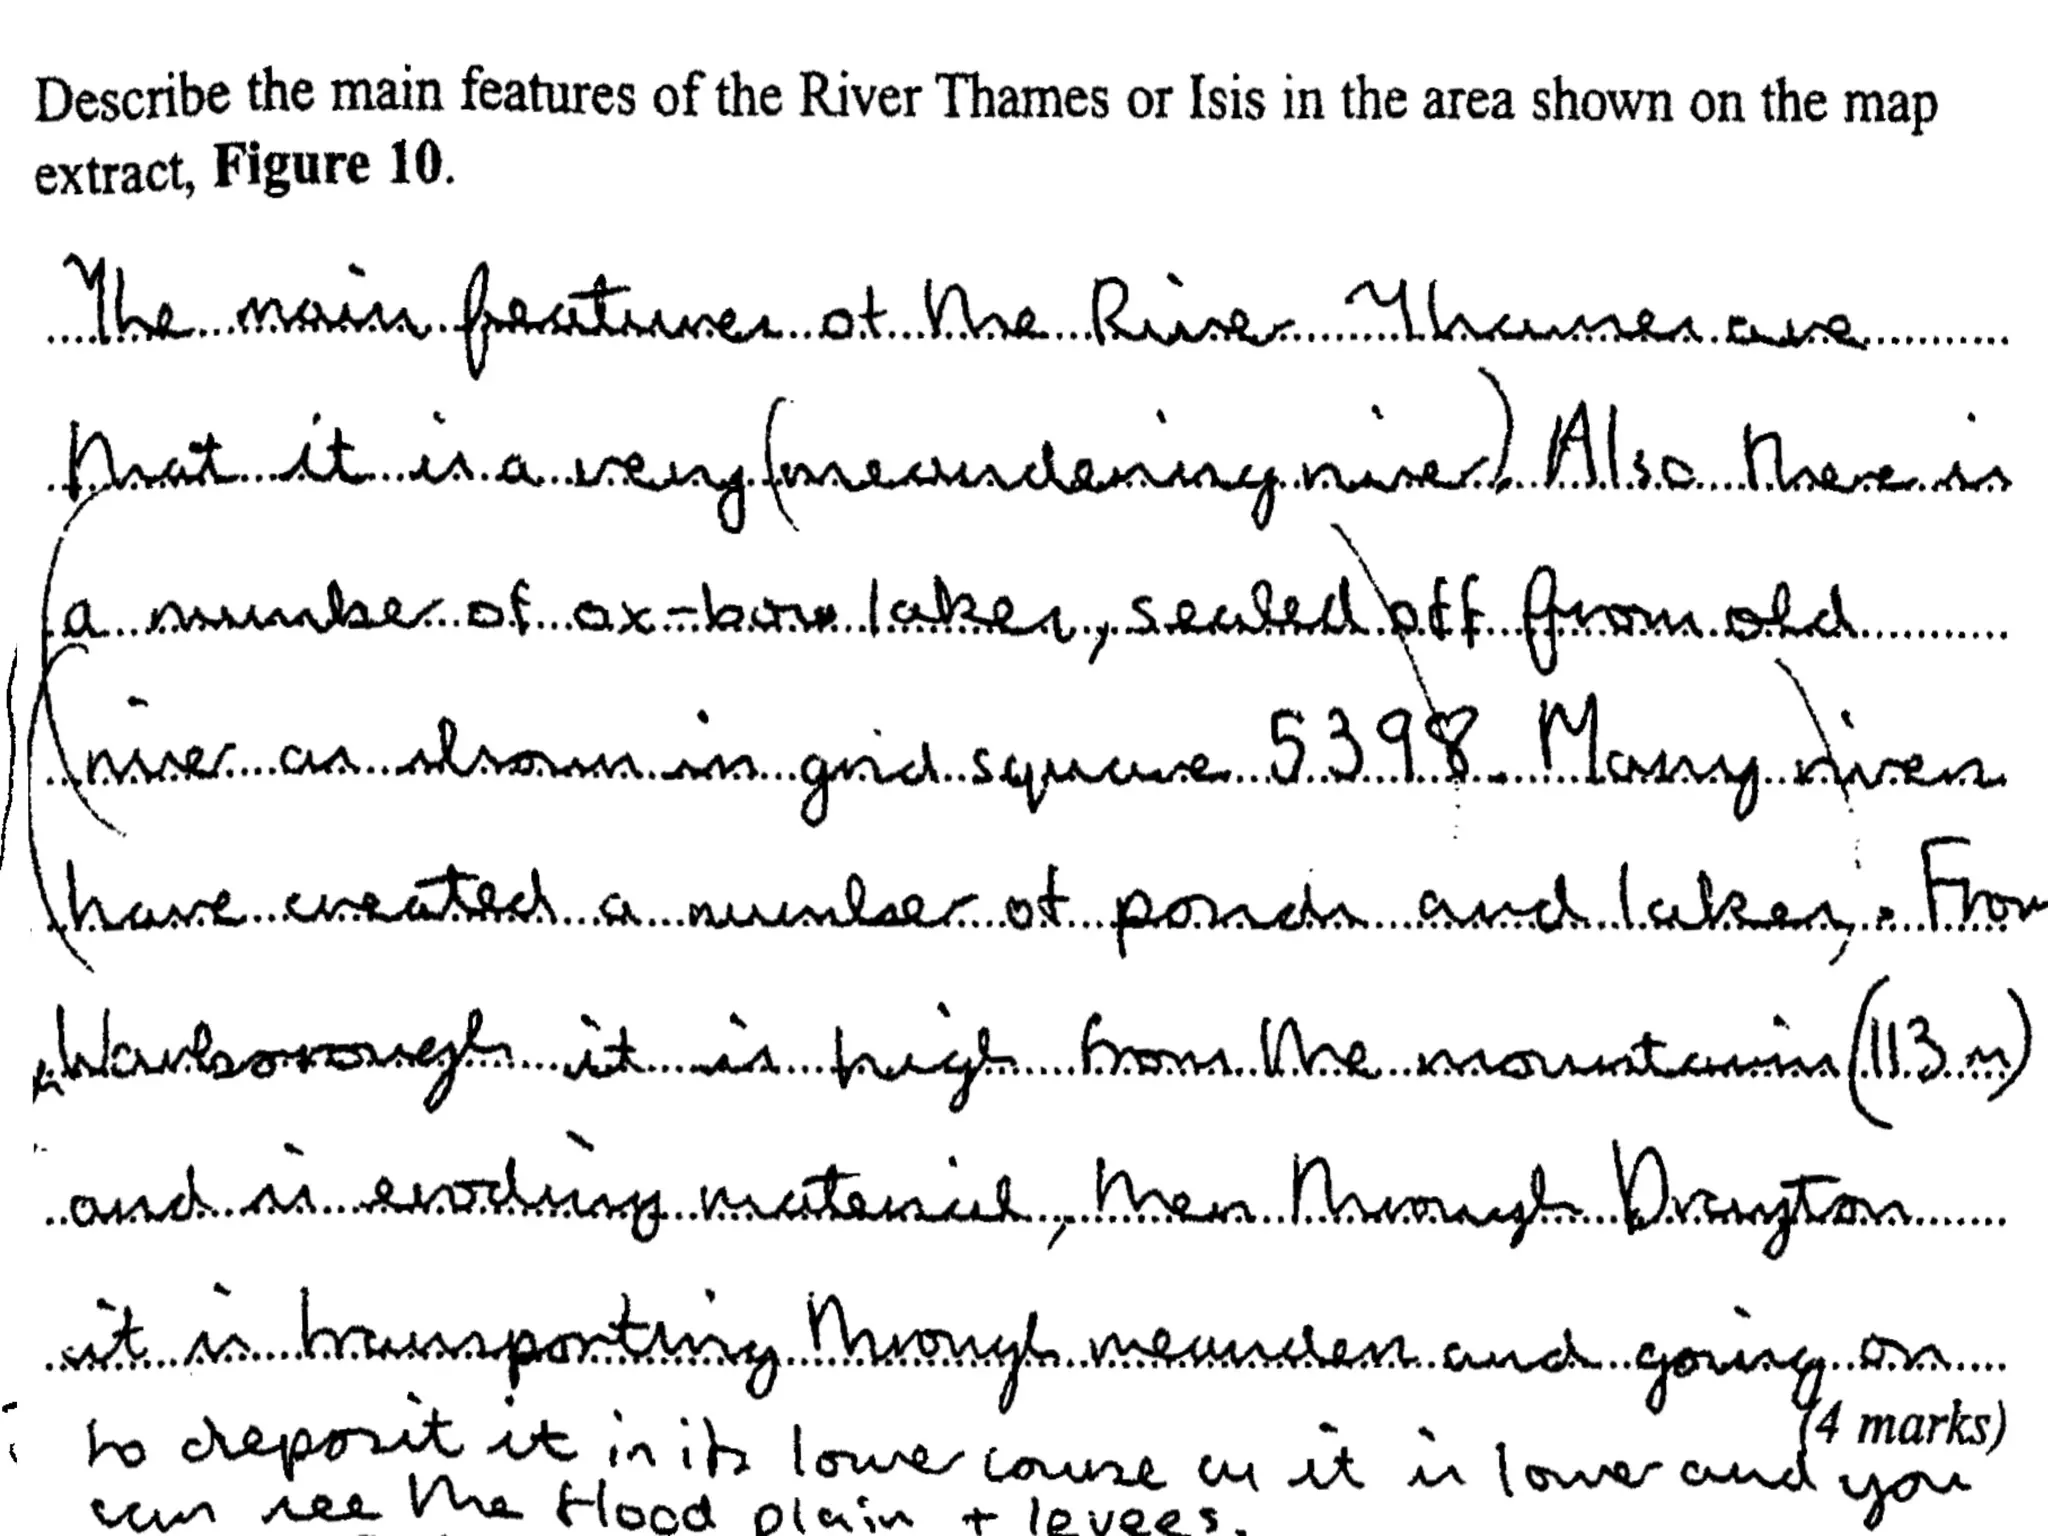 Describe the main features of the River Thames or Isis in the area shown on the map
extract, Figure 10.
The main features of the River Thames are
that it is a very (meandering river). Also there is
a number of ox-bow lakes, sealed off from old
river as shown in grid square 5398. Many rivers
have created a number of ponds and lakes,. From
Warborough it is high from the mountain (113 m)
and is eroding material, then through Drayton
it is transporting through meanders and going on
(4 marks)
to deposit it in its lower course as it is lower and you
can see the flood plain + levees.